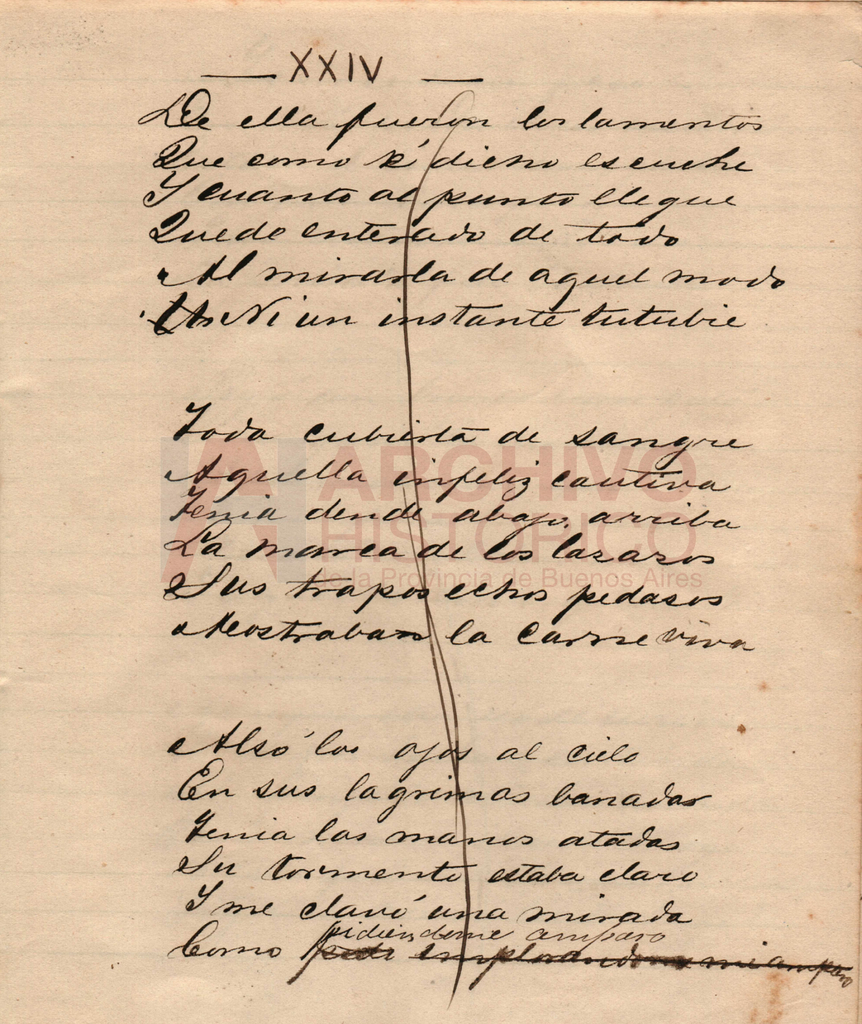 — XXIV —
De ella fueron los lamentos
Que como é dicho escuche
Y cuanto al punto llegue
Quede enterado de todo
Al mirarla de aquel modo
Ni un instante tutubie
Toda cubierta de sangre
Aquella infeliz cautiva
Tenia dende abajo arriba
La marca de los lazazos
Sus trapos echos pedasos
Mostraban la carne viva
Alsó los ojos al cielo
En sus lagrimas banadas
Tenia las manos atadas
Su tormento estaba claro
Y me clavó una mirada
pidiendome amparo
Como implorando mi amparo
ARCHIVO
HISTÓRICO
de la Provincia de Buenos Aires